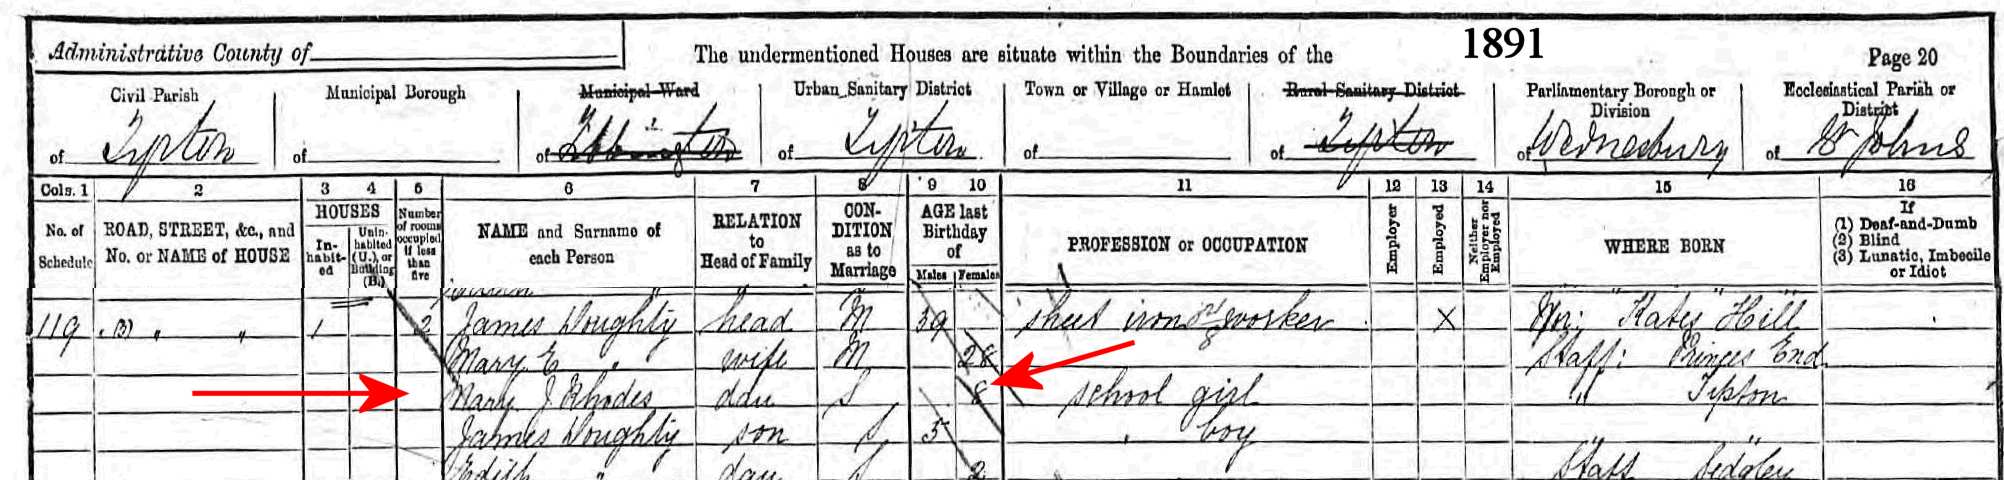 Administrative County of
The undermentioned Houses are situate within the Boundaries of the
1891
Page 20
Civil Parish
of Tipton
Municipal Borough
of
Municipal Ward
of
Urban Sanitary District
of Tipton
Town or Village or Hamlet
of
Rural Sanitary District
of Tipton
Parliamentary Borough or
Division
of Wednesbury
Ecclesiastical Parish or
District
of St Johns
Cols. 1 2 3 4 5 6 7 8 9 10 11 12 13 14 15 16
No. of
Schedule
ROAD, STREET, &c., and
No. or NAME of HOUSE
HOUSES
In-
habit-
ed
Unin-
habited
(U.), or
Building
(B.)
Number
of rooms
occupied
if less
than
five
NAME and Surname of
each Person
RELATION
to
Head of Family
CON-
DITION
as to
Marriage
AGE last
Birthday
of
Males Females
PROFESSION or OCCUPATION
Employer
Employed
Neither
Employer nor
Employed
WHERE BORN
If
(1) Deaf-and-Dumb
(2) Blind
(3) Lunatic, Imbecile
or Idiot
119 (3) " " 1 2 James Doughty head M 39 sheet iron worker X Wor: Kates Hill
Mary E " wife M 28 Staff: Princes End
Mary J Rhodes dau S 8 school girl " Tipton
James Doughty son S 5 " boy " "
Edith " dau S 2 Staff Sedgley